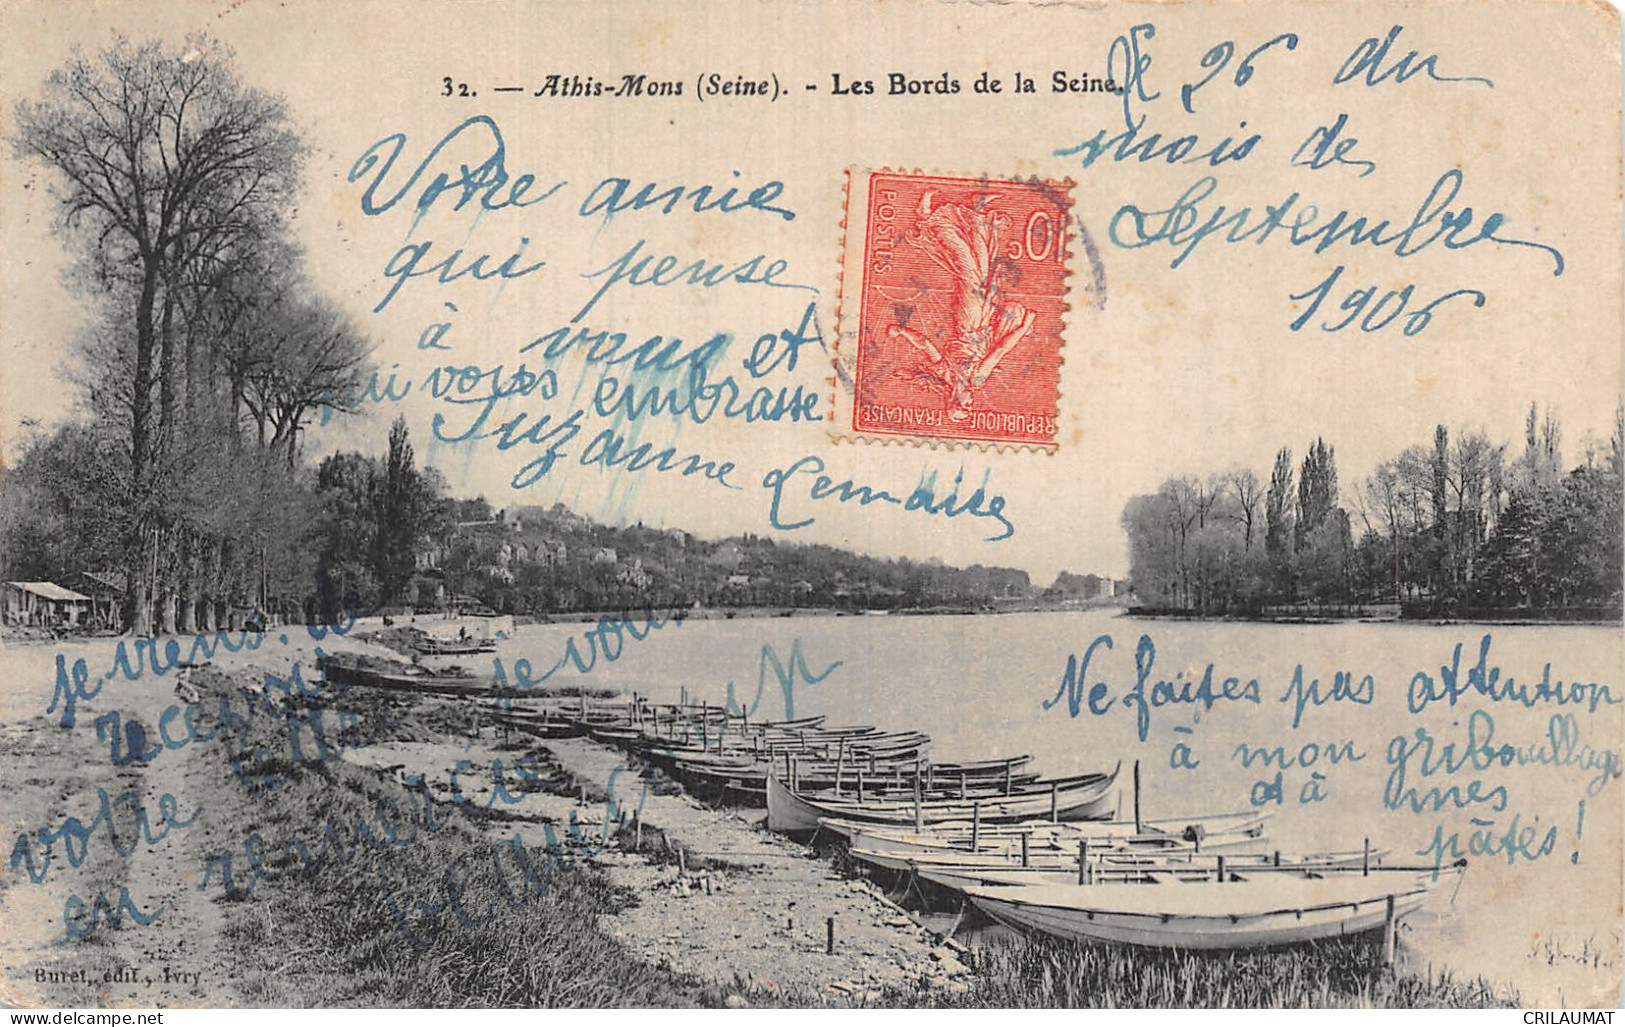 32. — Athis-Mons (Seine). - Les Bords de la Seine.
le 26 du
mois de
Septembre
1906
Votre amie
qui pense
à vous et
qui vous embrasse
Suzanne Lemaître
10c
POSTES
REPUBLIQUE FRANÇAISE
je viens de
recevoir
votre lettre je vous
en remercie
beaucoup
Ne faites pas attention
à mon gribouillage
et à mes
pâtés!
Buret, édit., Ivry
CRILAUMAT